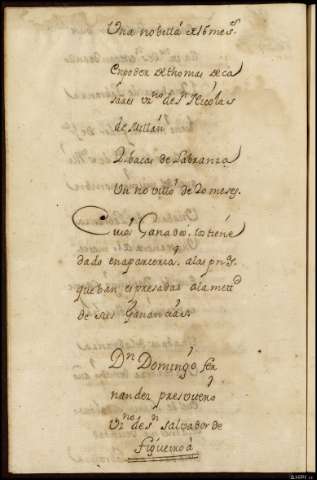 Una nobilla de 16 mes.s
En poder de thomas de ca
sares vz.no de sn Nicolas
de Millan
2 bacas de Labranza
Un novillo de 20 meses.
Cuios Ganados, los tiene
dado en aparceria, a las pns.
que ban espresadas a la mett.d
de sus Ganancias.
Dn. Domingo fer
nandez presvitero
vz.no de sn salvador de
figueiroà